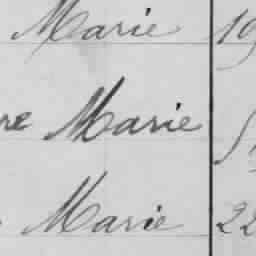 Marie 19
re Marie
Marie 22